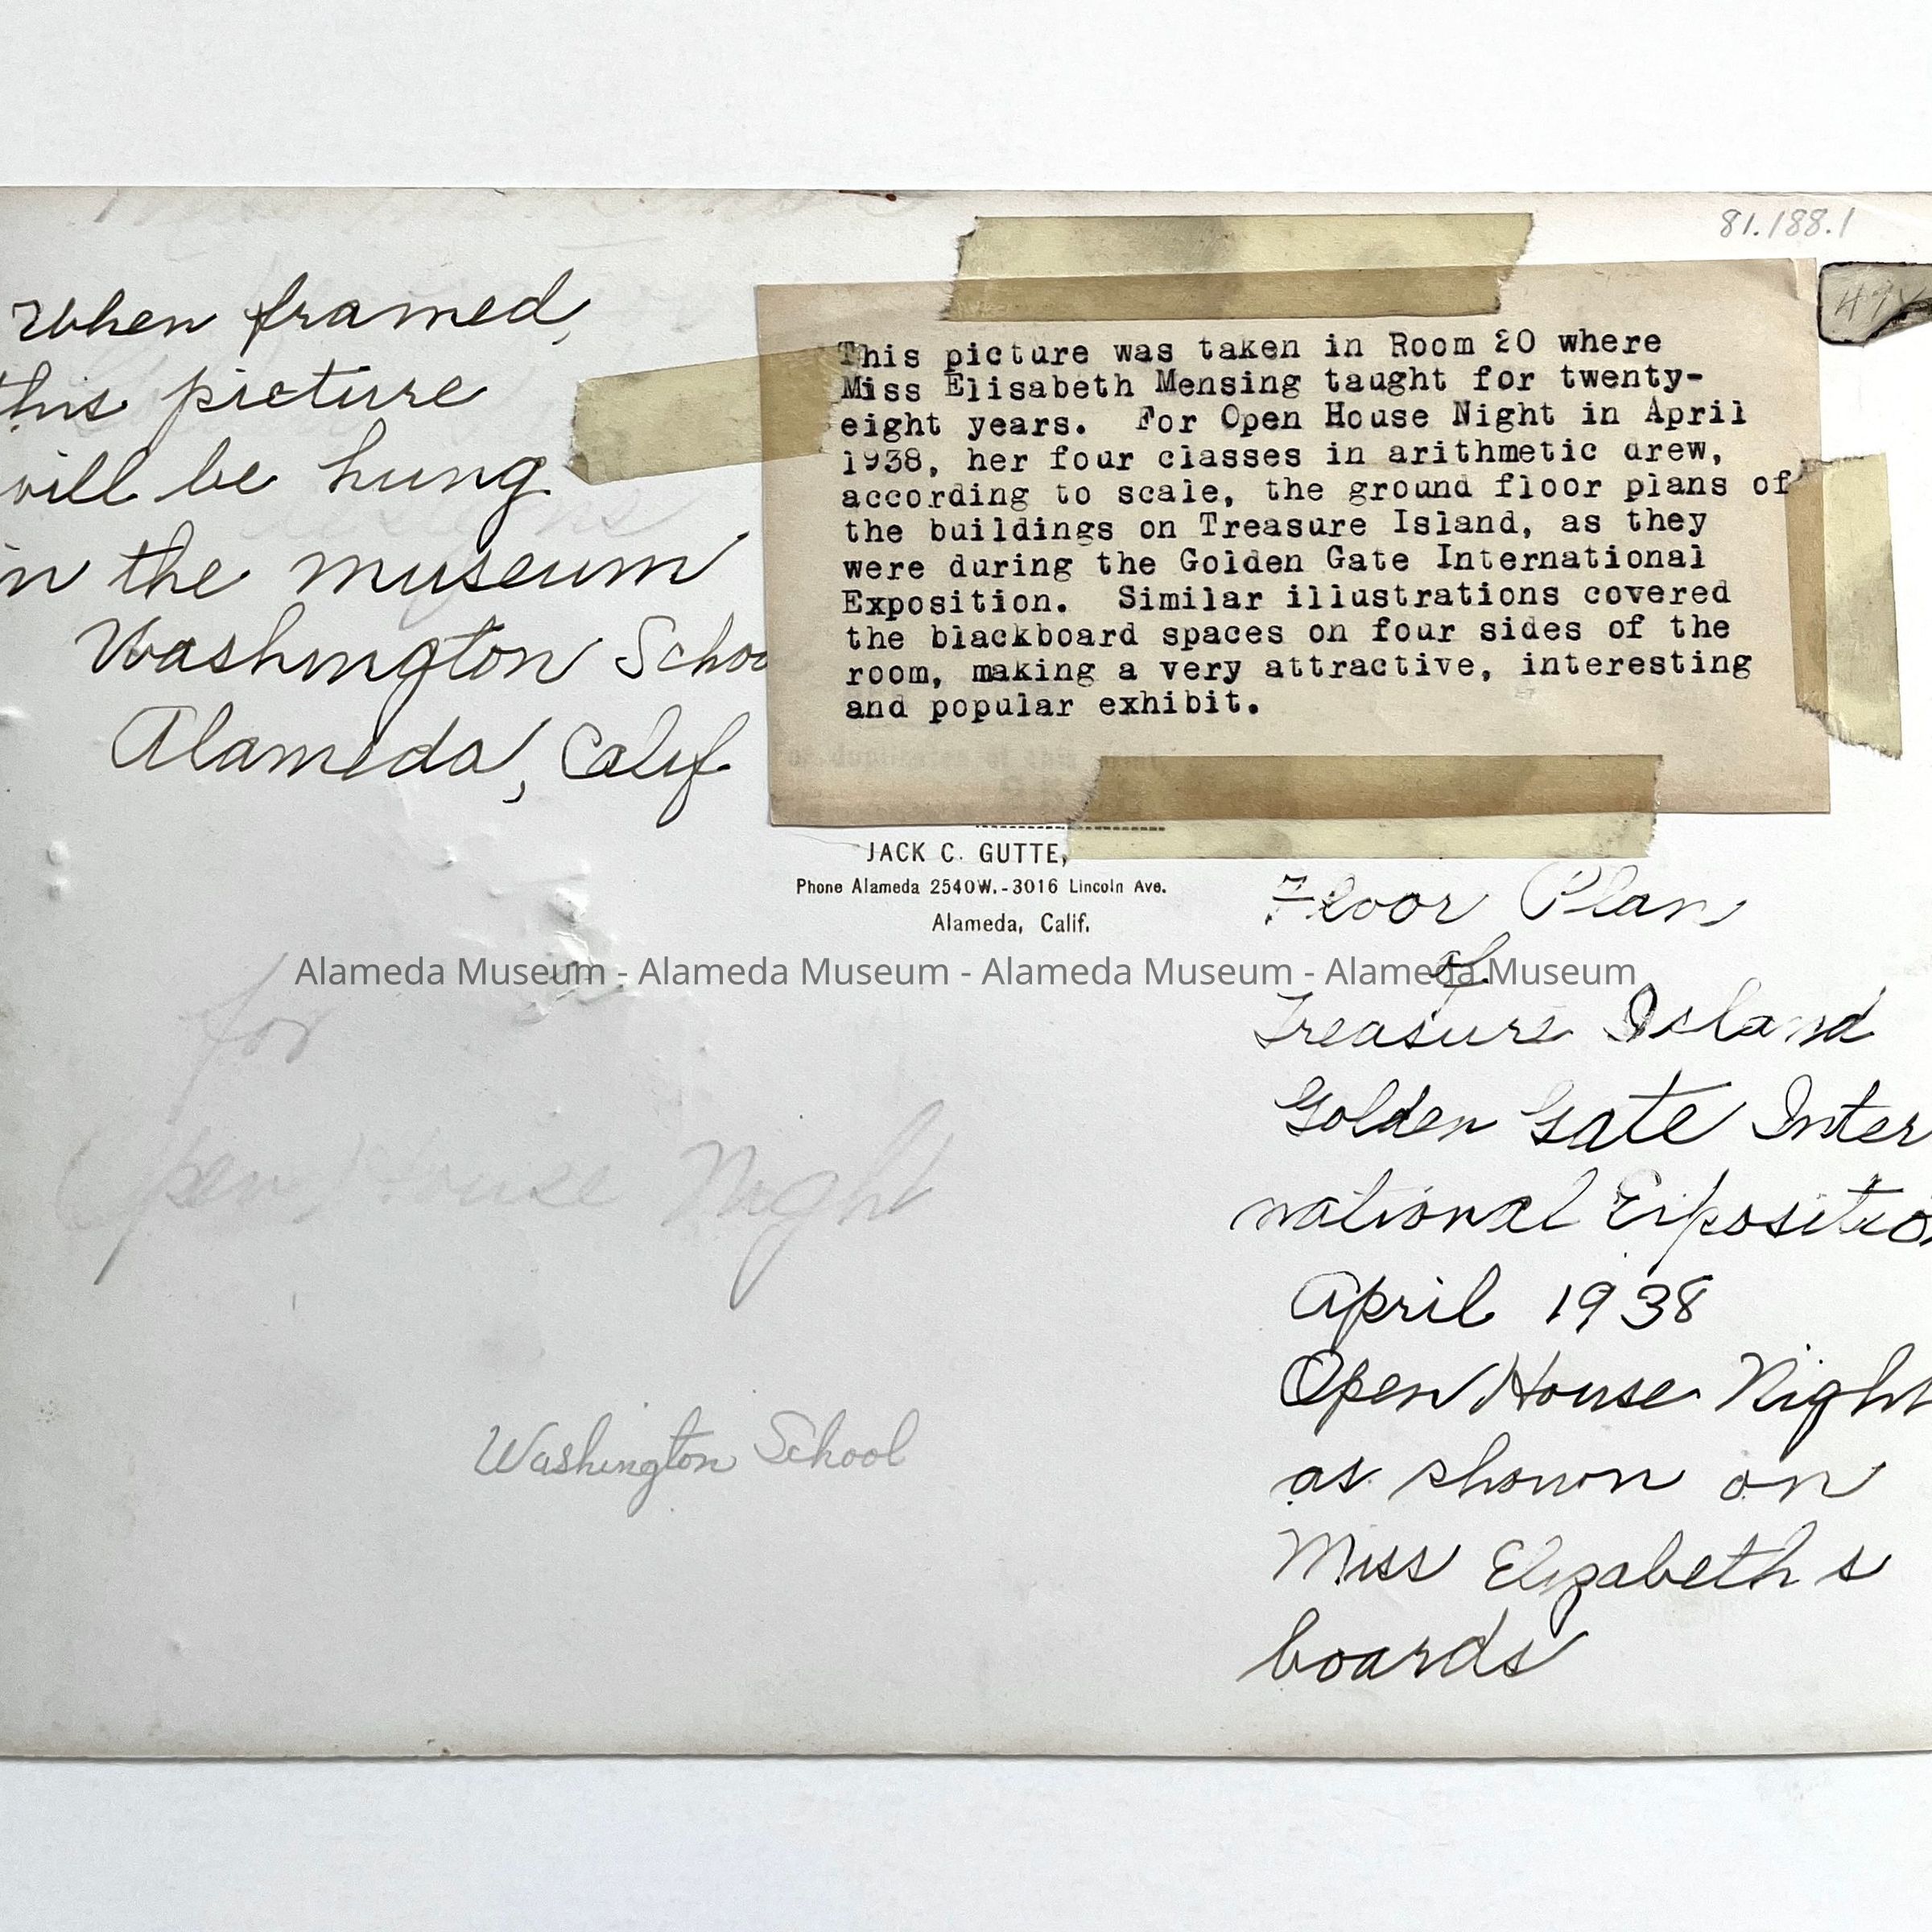 81.188.1
When framed,
this picture
will be hung
in the museum
Washington Schoo
Alameda, Calif
This picture was taken in Room 20 where
Miss Elisabeth Mensing taught for twenty-
eight years. For Open House Night in April
1938, her four classes in arithmetic drew,
according to scale, the ground floor plans of
the buildings on Treasure Island, as they
were during the Golden Gate International
Exposition. Similar illustrations covered
the blackboard spaces on four sides of the
room, making a very attractive, interesting
and popular exhibit.
For duplicates of this print
JACK C. GUTTE,
Phone Alameda 2540W.-3016 Lincoln Ave.
Alameda, Calif.
Alameda Museum - Alameda Museum - Alameda Museum - Alameda Museum
for
Open House Night
Washington School
Floor Plan
of
Treasure Island
Golden Gate Inter
national Expositio
April 1938
Open House Night
as shown on
Miss Elizabeths
boards